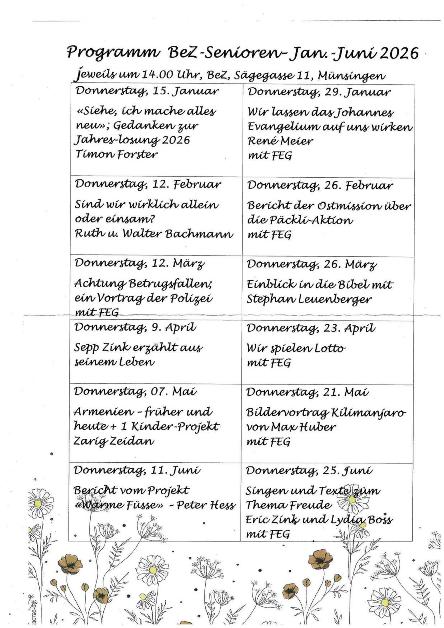 Programm BeZ-Senioren- Jan.-Juni 2026
jeweils um 14.00 Uhr, BeZ, Sägegasse 11, Münsingen
Donnerstag, 15. Januar
«Siehe, ich mache alles
neu»; Gedanken zur
Jahres-losung 2026
Timon Forster
Donnerstag, 29. Januar
Wir lassen das Johannes
Evangelium auf uns wirken
René Meier
mit FEG
Donnerstag, 12. Februar
Sind wir wirklich allein
oder einsam?
Ruth u. Walter Bachmann
Donnerstag, 26. Februar
Bericht der Ostmission über
die Päckli-Aktion
mit FEG
Donnerstag, 12. März
Achtung Betrugsfallen;
ein Vortrag der Polizei
mit FEG
Donnerstag, 26. März
Einblick in die Bibel mit
Stephan Leuenberger
Donnerstag, 9. April
Sepp Zink erzählt aus
seinem Leben
Donnerstag, 23. April
Wir spielen Lotto
mit FEG
Donnerstag, 07. Mai
Armenien – früher und
heute + 1 Kinder-Projekt
Zarig Zeidan
Donnerstag, 21. Mai
Bildervortrag Kilimanjaro
von Max Huber
mit FEG
Donnerstag, 11. Juni
Bericht vom Projekt
«Warme Füsse» - Peter Hess
Donnerstag, 25. Juni
Singen und Texte zum
Thema Freude
Eric Zink und Lydia Boss
mit FEG